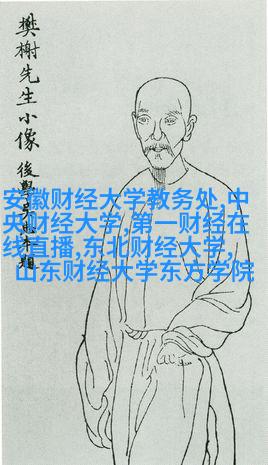 樊榭先生小像
後學
安徽财经大学教务处,中
央财经大学,第一财经在
线直播,东北财经大学,
山东财经大学东方学院